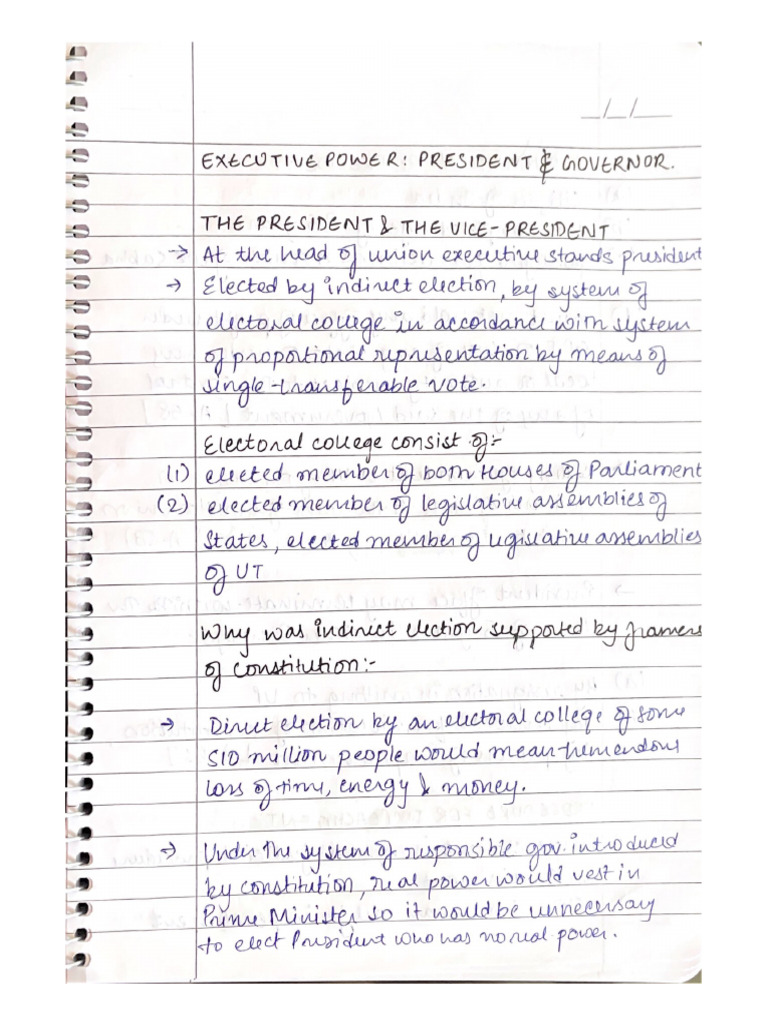 _/_/_
EXECUTIVE POWER: PRESIDENT & GOVERNOR.
THE PRESIDENT & THE VICE-PRESIDENT
→ At the head of union executive stands president
→ Elected by indirect election, by system of
electoral college in accordance with system
of proportional representation by means of
single-transferable vote.
Electoral college consist of:-
(1) elected member of both Houses of Parliament
(2) elected member of legislative assemblies of
States, elected member of legislative assemblies
of UT
Why was indirect election supported by framers
of constitution:-
→ Direct election by an electoral college of some
510 million people would mean tremendous
loss of time, energy & money.
→ Under the system of responsible gov. introduced
by constitution, real power would vest in
Prime Minister so it would be unnecessary
to elect President who has no real power.